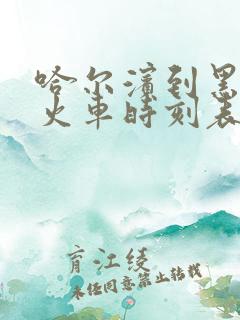 哈尔滨到黑
火车时刻表
育江绫
未经同意禁止转载